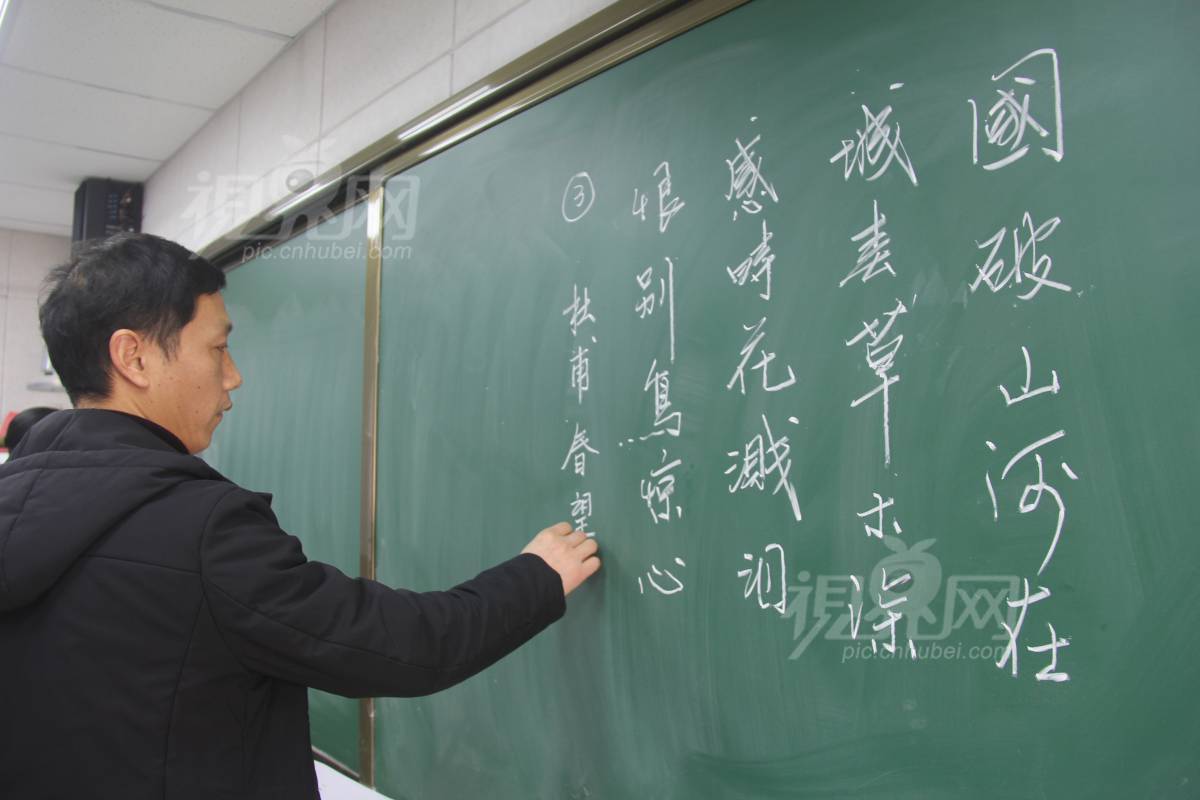 國破山河在
城春草木深
感時花濺泪
恨别鳥惊心
③ 杜甫春望
視界网
pic.cnhubei.com
視界网
pic.cnhubei.com